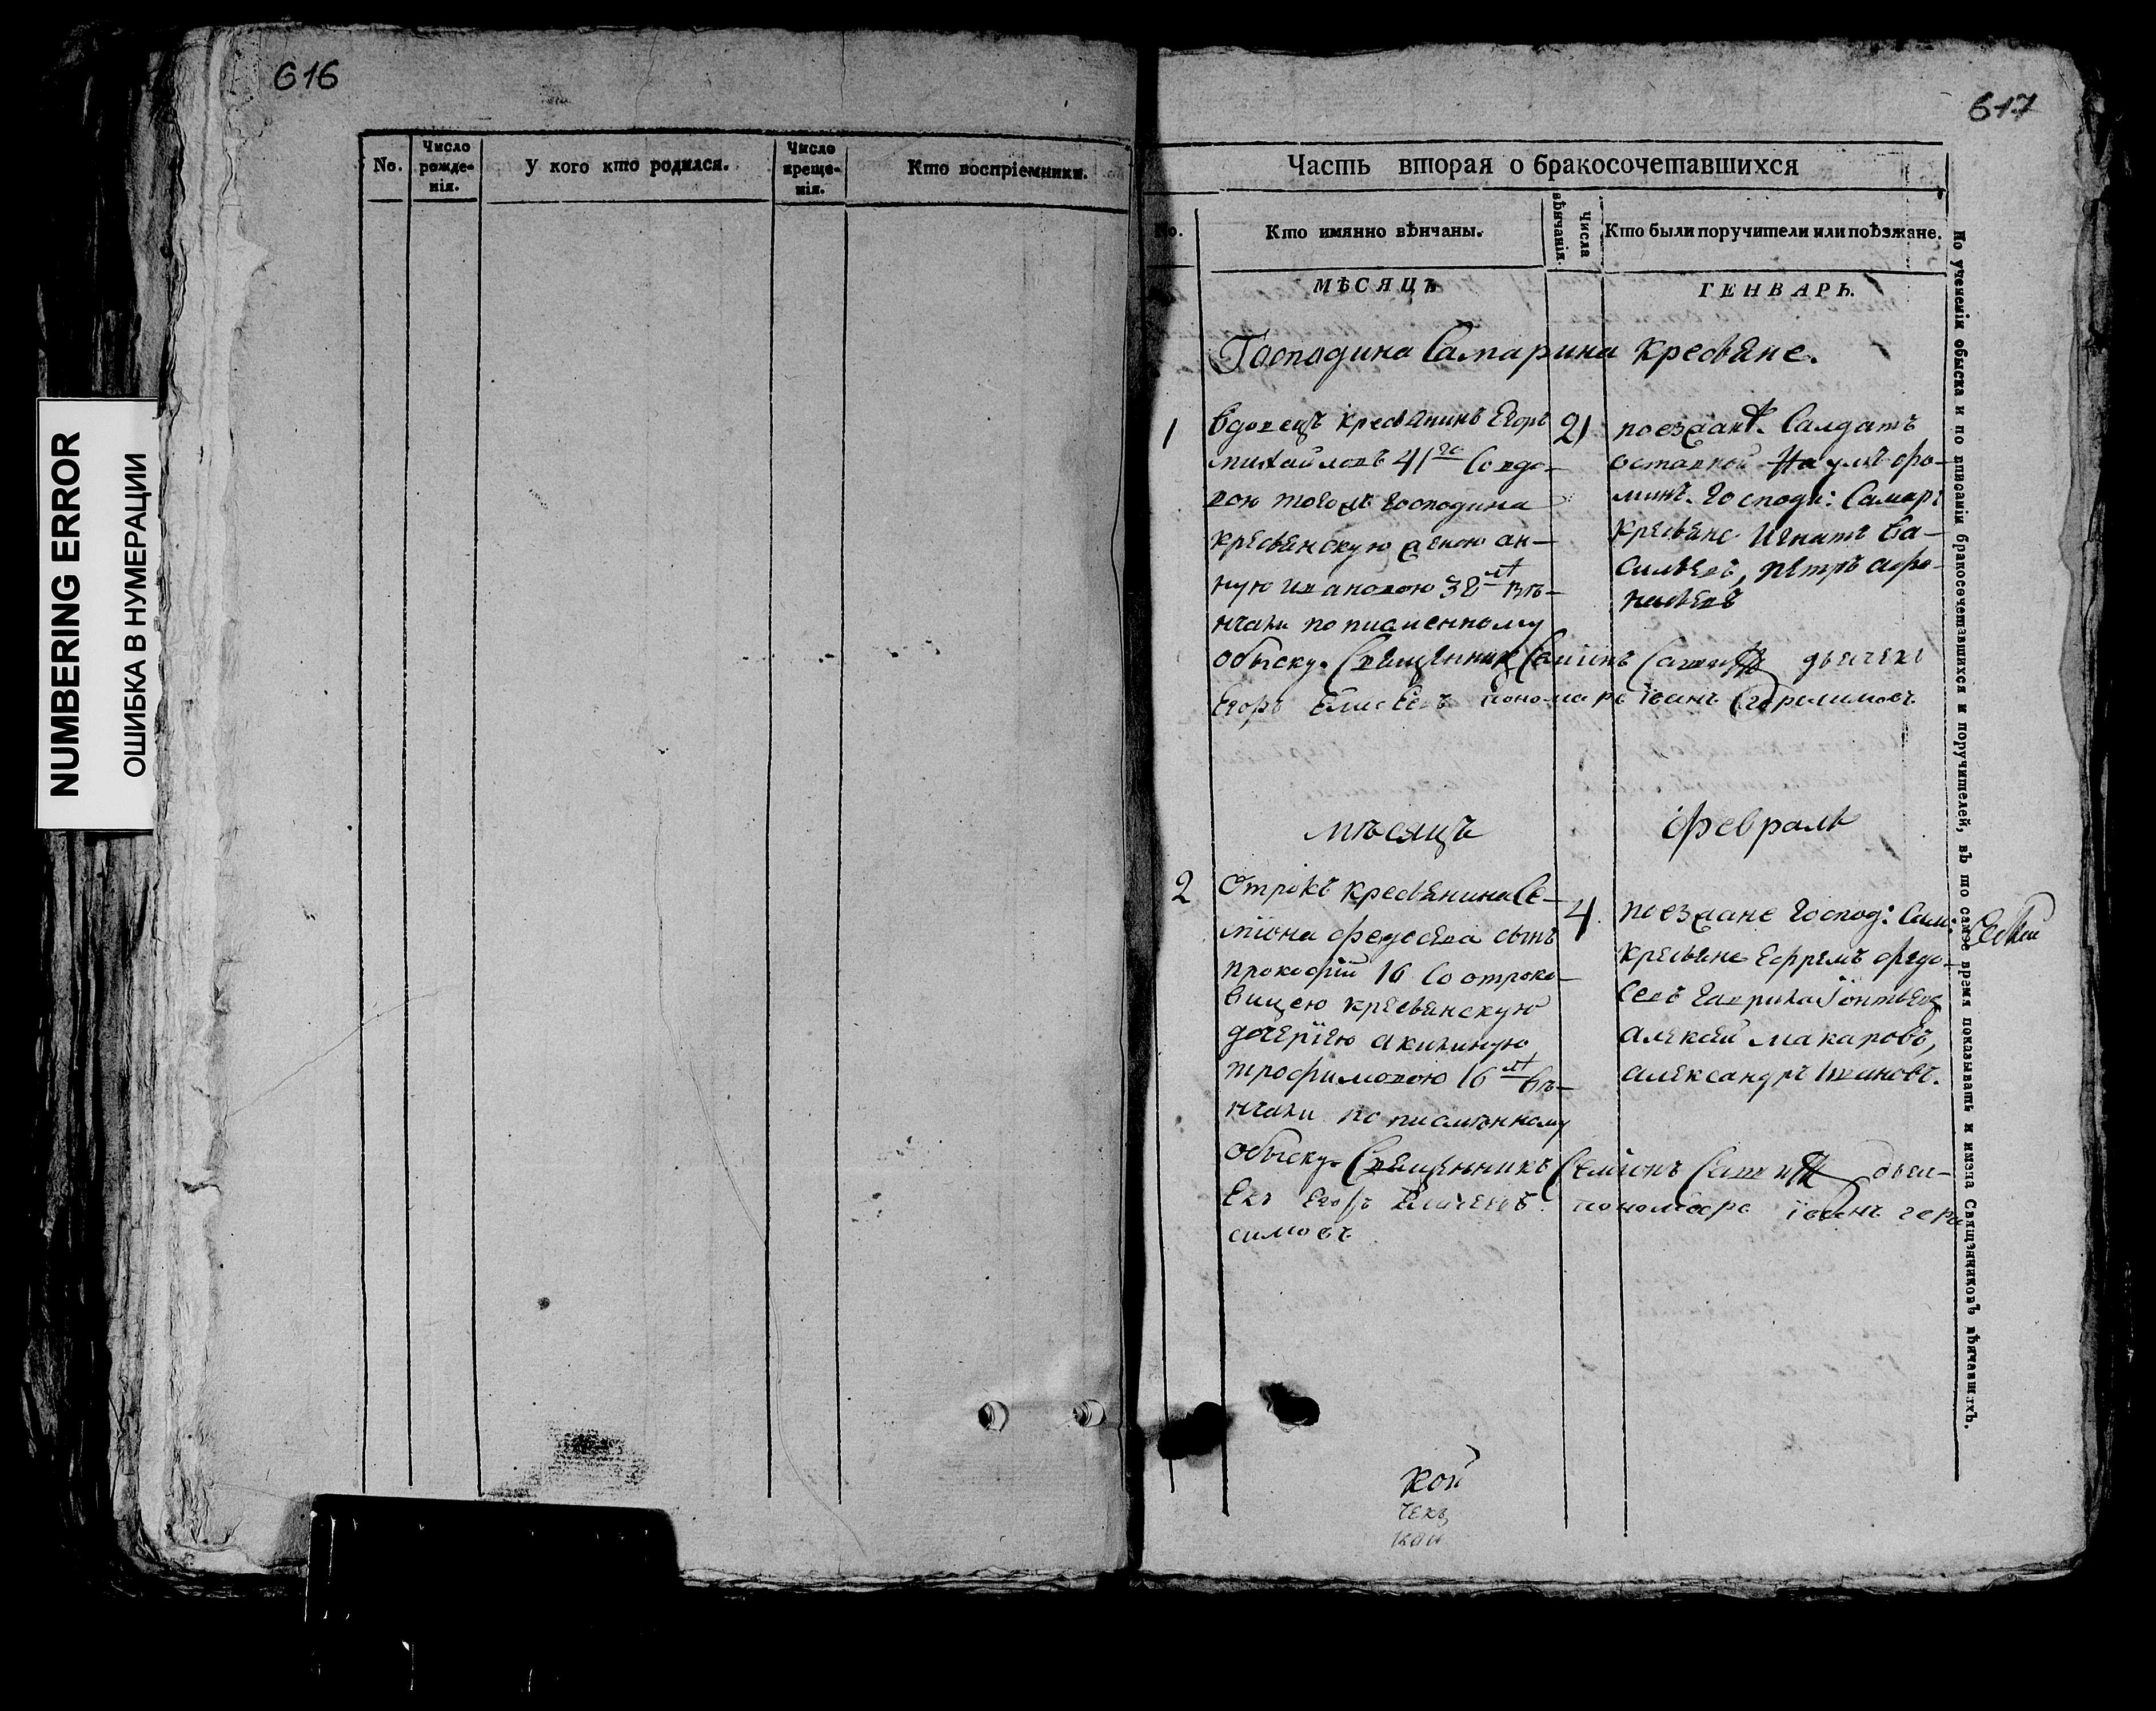 616
617
NUMBERING ERROR
ОШИБКА В НУМЕРАЦИИ
No.
Число рожденія.
У кого кто родился.
Число крещенія.
Кто воспріемники.
Часть вторая о бракосочетавшихся
No.
Кто имянно вѣнчаны.
Числа вѣнчанія.
Кто были поручители или поѣзжане.
МѢСЯЦЪ
ГЕНВАРЬ.
Господина Самарина кресьяне.
1
вдовецъ кресьянинъ Егоръ
михайловъ 41го Совдо-
вою тогожъ господина
кресьянскую женою ан-
ною ивановою 38 лѣт вѣ-
нчали по писменному
обыску. Священникъ Семионъ дьячекъ
Егоръ Елисеевъ пономарь іоанъ Герасимовъ
21
поезжанѣ. Салдатъ
оставной Наумъ фо-
минъ. Господи: Самар:
кресьяне Игнатъ Ва-
сильевъ, петръ афо-
насьевъ
мѣсяцъ
февраль
2
Отрокъ кресьянина Се-
миона федосева сынъ
прокофій 16 Со отроко-
вицею кресьянскую
дочерїею акилиную
трофимовою 16 лѣт вѣ-
нчали по писмѣнному
обыску. Священникъ Семіонъ дьеч-
екъ Егоръ Елисеевъ пономарь іоанъ гера
симовъ
4.
поезжане Господ: Сам:
кресьяне Ефремъ федо-
севъ Гаврила
алексей макаровъ,
александръ Ивановъ.
По учиненіи обыска и по вписаніи бракосочетавшихся и поручителей, въ то самое время показывать и имена Священниковъ вѣнчавшихъ.
кой
чекъ